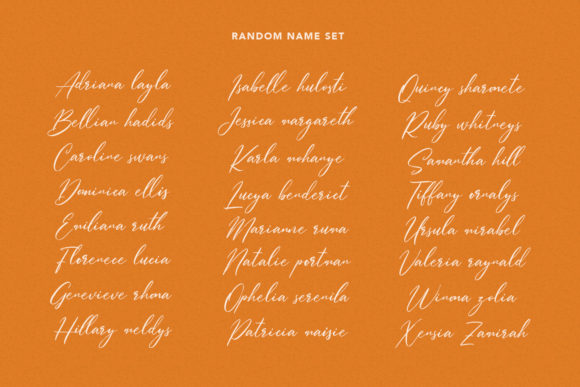 RANDOM NAME SET
Adriana layla
Bellian hadids
Caroline swans
Dominica ellis
Emiliana ruth
Florenece lucia
Genevieve rhoma
Hillary meldys
Isabelle hulusti
Jessica margareth
Karla mohanye
Lucya benderict
Marianne runa
Natalie portman
Ophelia serenila
Patricia maisie
Quincy sharmete
Ruby whitneys
Samantha hill
Tiffany ornalys
Ursula mirabel
Valeria raynald
Winma zolia
Xensia Zamirah